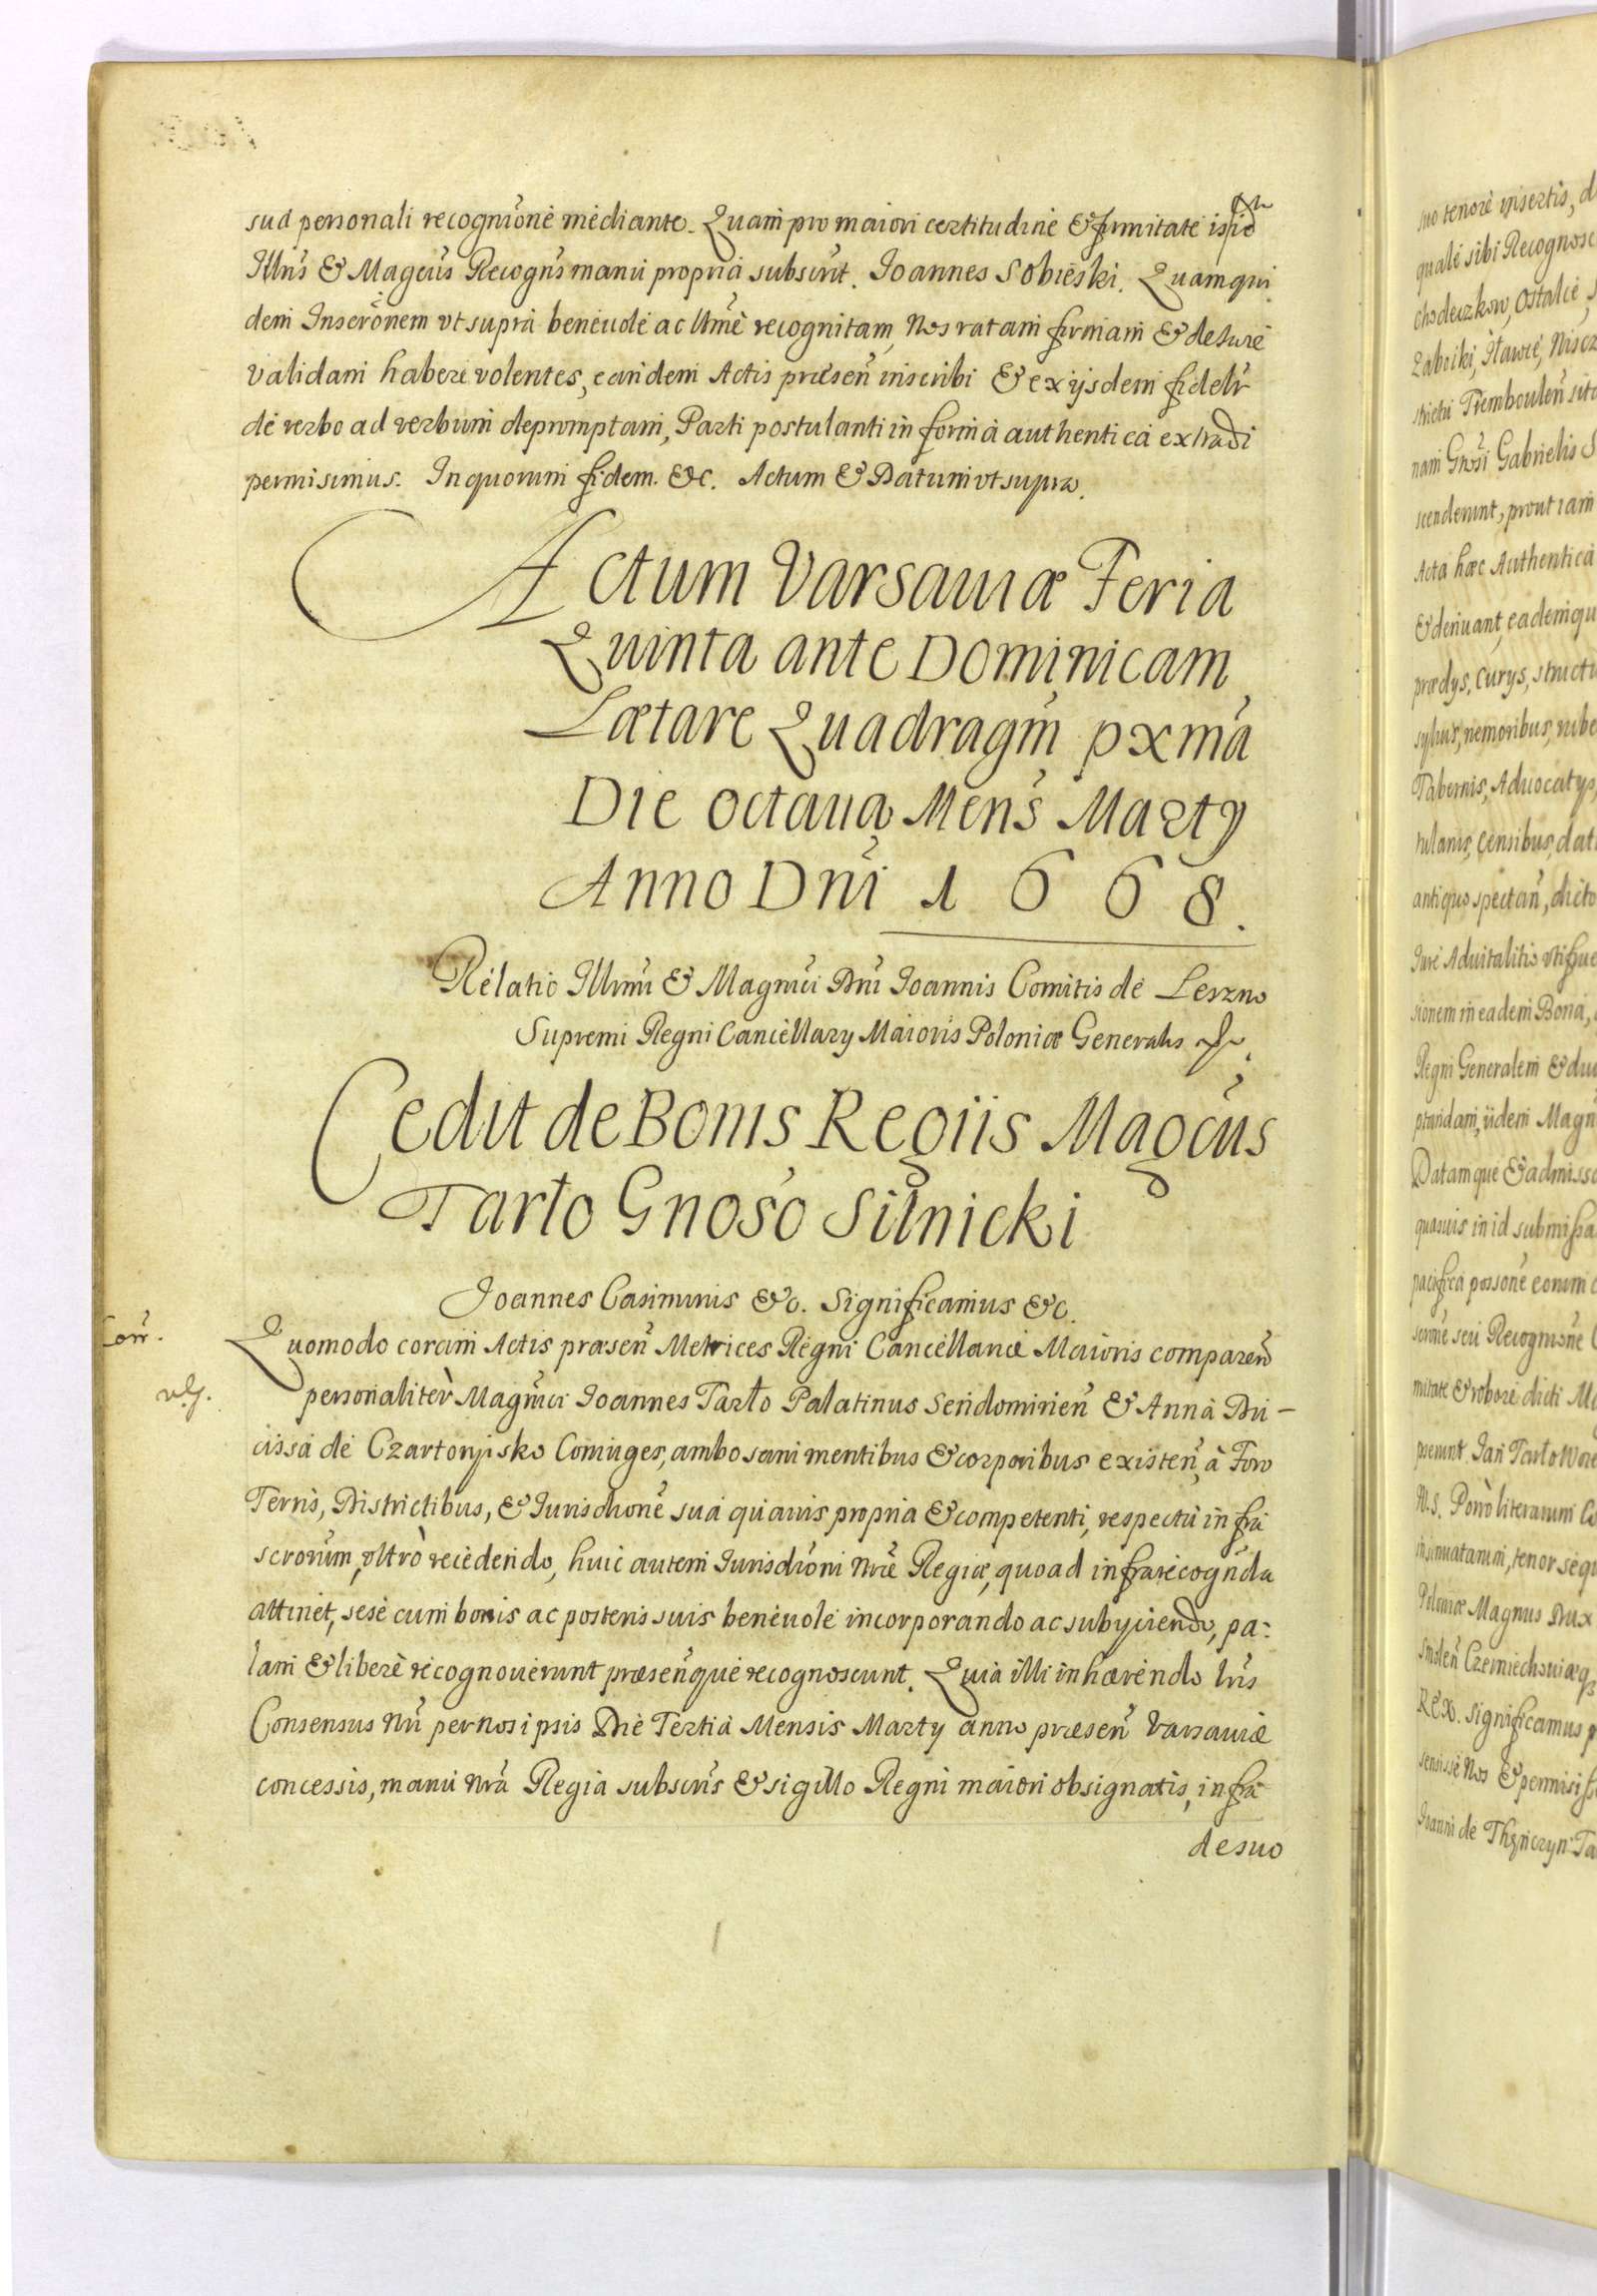 sua personali recognitione mediante. Quam pro maiori certitudine & firmitate
Illrıs & Magcus Recognūs manu propria subscrıt. Ioannes Sobieski. Quamqui
dem Inserōnem vt supra beneuole ac lıtıme recognitam, Nos ratam firmam & de Iure
validam habere volentes, eandem Actis præsen̄ inscribi & ex ijsdem fidelr̄
de verbo ad verbum depromptam, Parti postulanti in forma authentica extradi
permisimus. In quorum fidem. &c. Actum & Datum vt supra.
Actum Varsauiæ Feria
Quinta ante Dominicam
Lætare Quadragm̄ pxmā
Die octaua Mens̄ Martÿ
Anno Dnī 1668.
Relatio Illrmi & Magnıci Dnı Ioannis Comitis de Leszno
Supremi Regni Cancellarÿ Maioris Poloniæ Generalis
Cedit de Bonis Regiis Magcūs
Tarło Gnosō Silnicki
Ioannes Casimirus &c. Significamus &c.
Corr̄.
Quomodo coram Actis præsen̄ Metrices Regni Cancellariæ Maioris comparen̄
personaliter Magnıci Ioannes Tarło Palatinus Sendomirien̄ & Anna Du-
cissa de Czartoryisko Coniuges, ambo sani mentibus & corporibus existen̄, à Foro
Terris, Districtibus, & Iurisdıone sua quauis propria & competenti, respectu infra
scrorum, vltrò recedendo, huic autem Iurisdıoni Nræ Regiæ, quoad infra recognda
attinet, sese cum bonis ac posteris suis beneuole incorporando ac subÿciendo, pa-
lam & libere recognouerunt præsen̄que recognoscunt. Quia illi inhærendo Lrıs
Consensus Nrı per nos ipsis Die Tertia Mensis Martÿ anno præsen̄ Varsauiæ
concessis, manu Nrā Regia subscrıs & sigillo Regni maiori obsignatis, infra
de suo
suo tenore insertis, d
quale sibi Recognosc
Chodeczkow, Ostalcè, S
Zaboiki, Iławcè, Niscz
strictu Tremboulen̄ sit
nam Gnosı Gabrielis S
scenderunt, prout iam
Acta hæc Authentica
& deriuant, eademqu
prædÿs, curÿs, struct
syluis, nemoribus, rube
Tabernis, Aduocatÿs,
tulanis, censibus, dat
antiquo spectan̄, dicto
Iure Aduitalitio vtifrue
sionem in eadem Bona,
Regni Generalem & du
prandam, iidem Magn
Datamque & admissa
quasuis in id submissa
pacifica possone eorum
scrone seu Recognone
mitate & robore dicti Ma
pserunt. Jan Tarło Woie
M.S. Porrò literarum Co
insinuatarum, tenor sequ
Poloniæ Magnus Dux
Smolen̄ Czerniechouiæq
REX. Significamus p
sensisse Nos & permisiss
Ioanni de Thęnczyn Ta